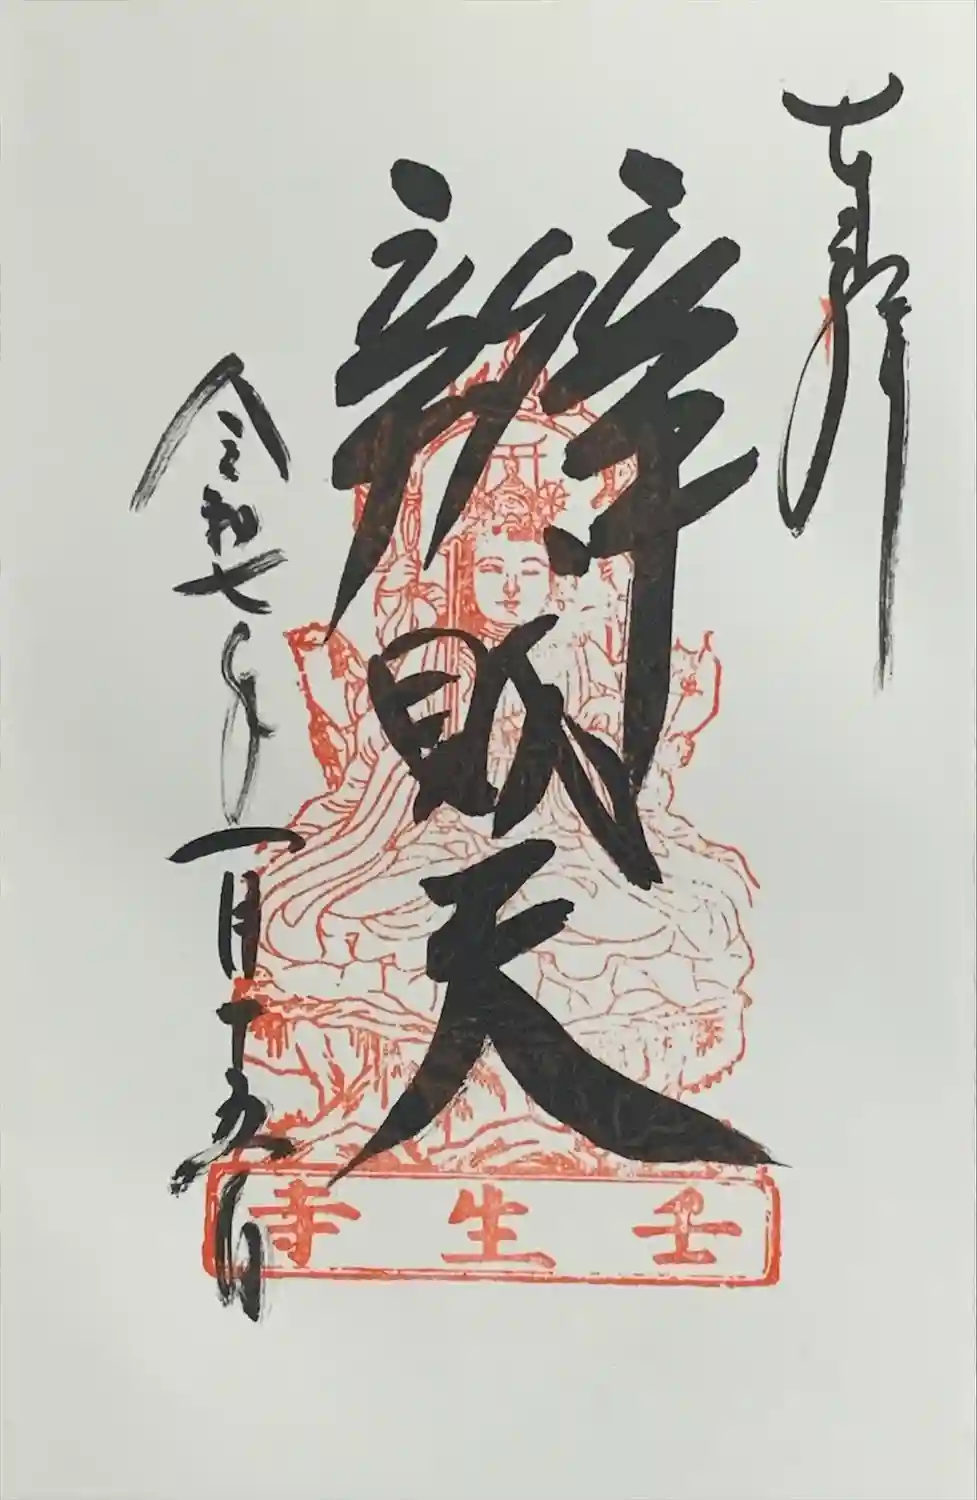 奉拝
辨財天
令和七年一月十五日
寺生壬